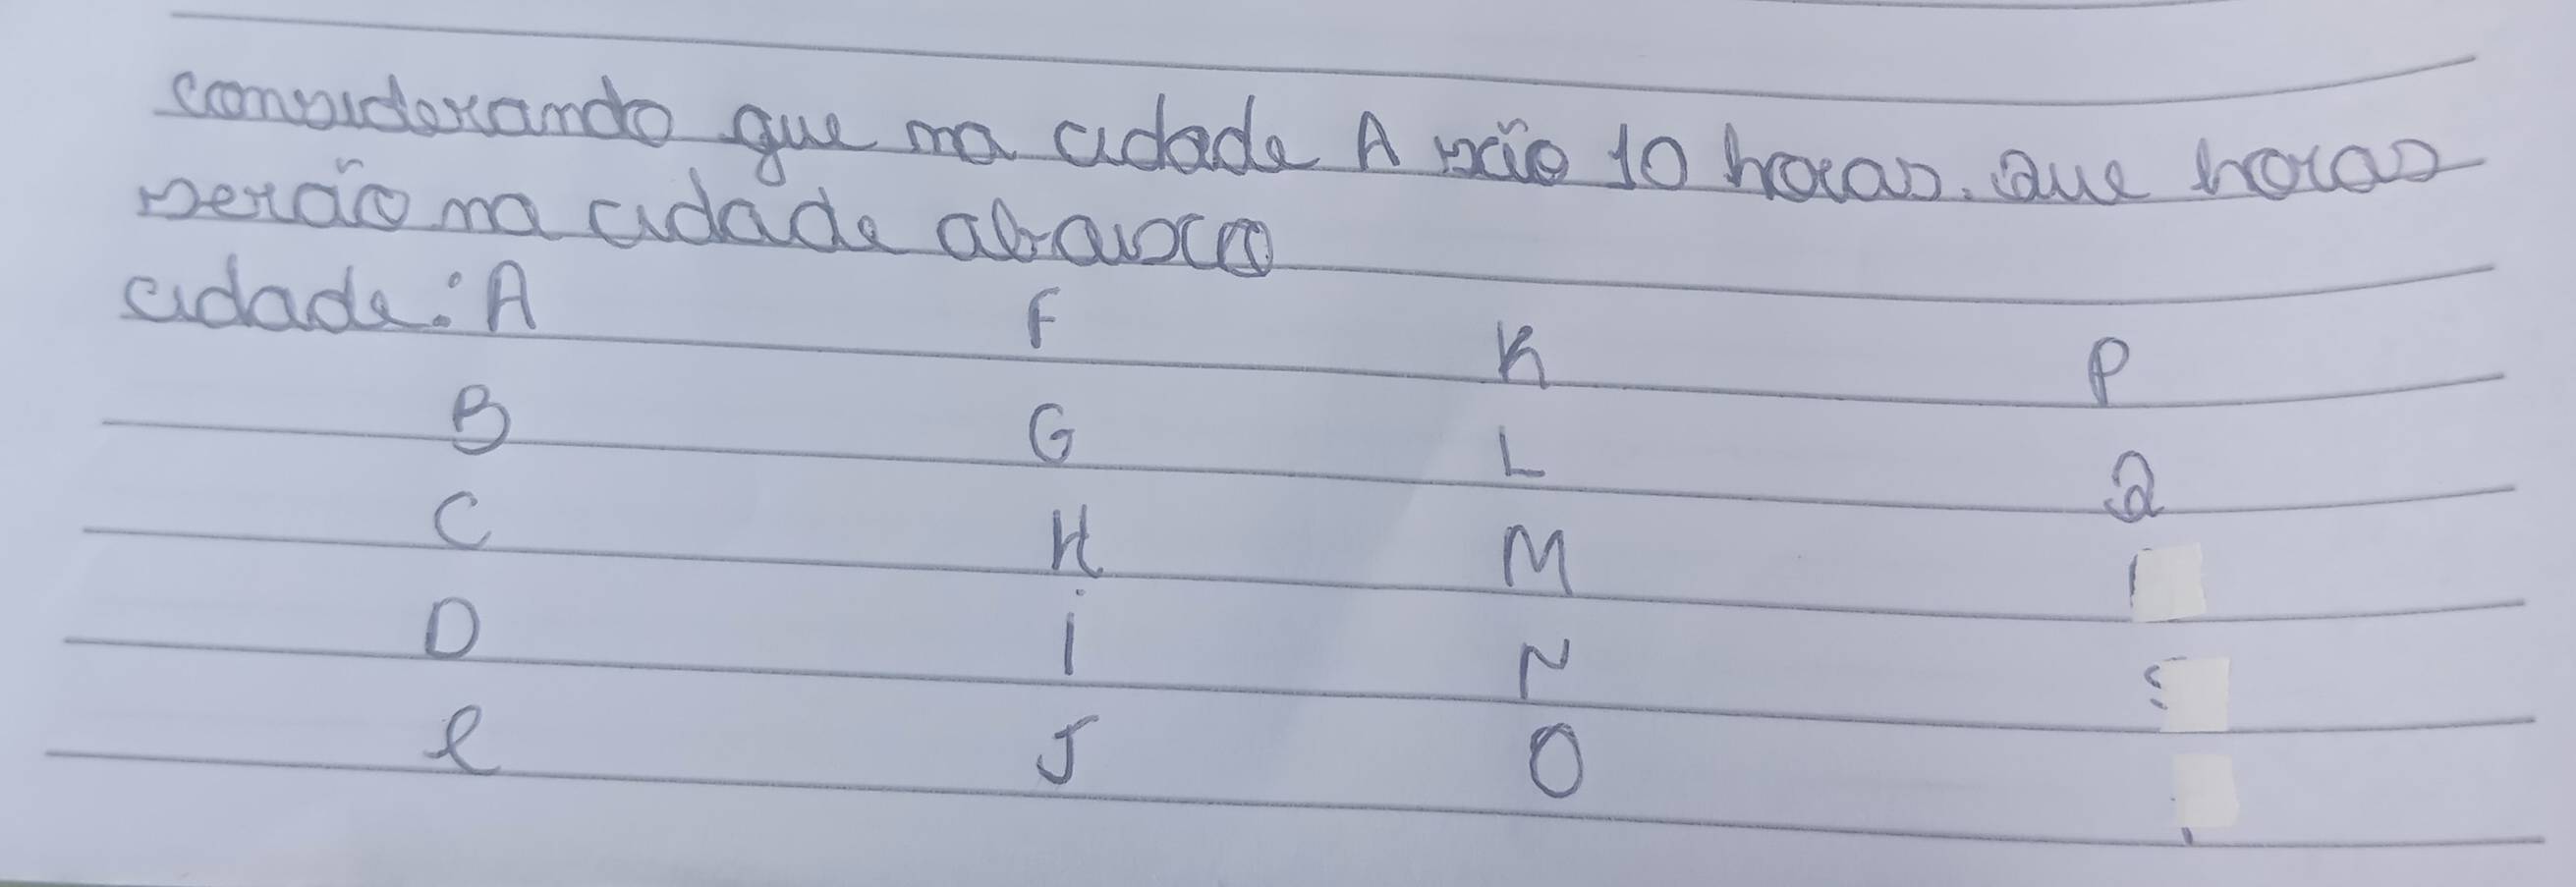 considerando que na cidade A são 10 horas. Que horas
serão na cidade abaixo
cidade: A F K P
B G L Q
C H M
D i N
e J O